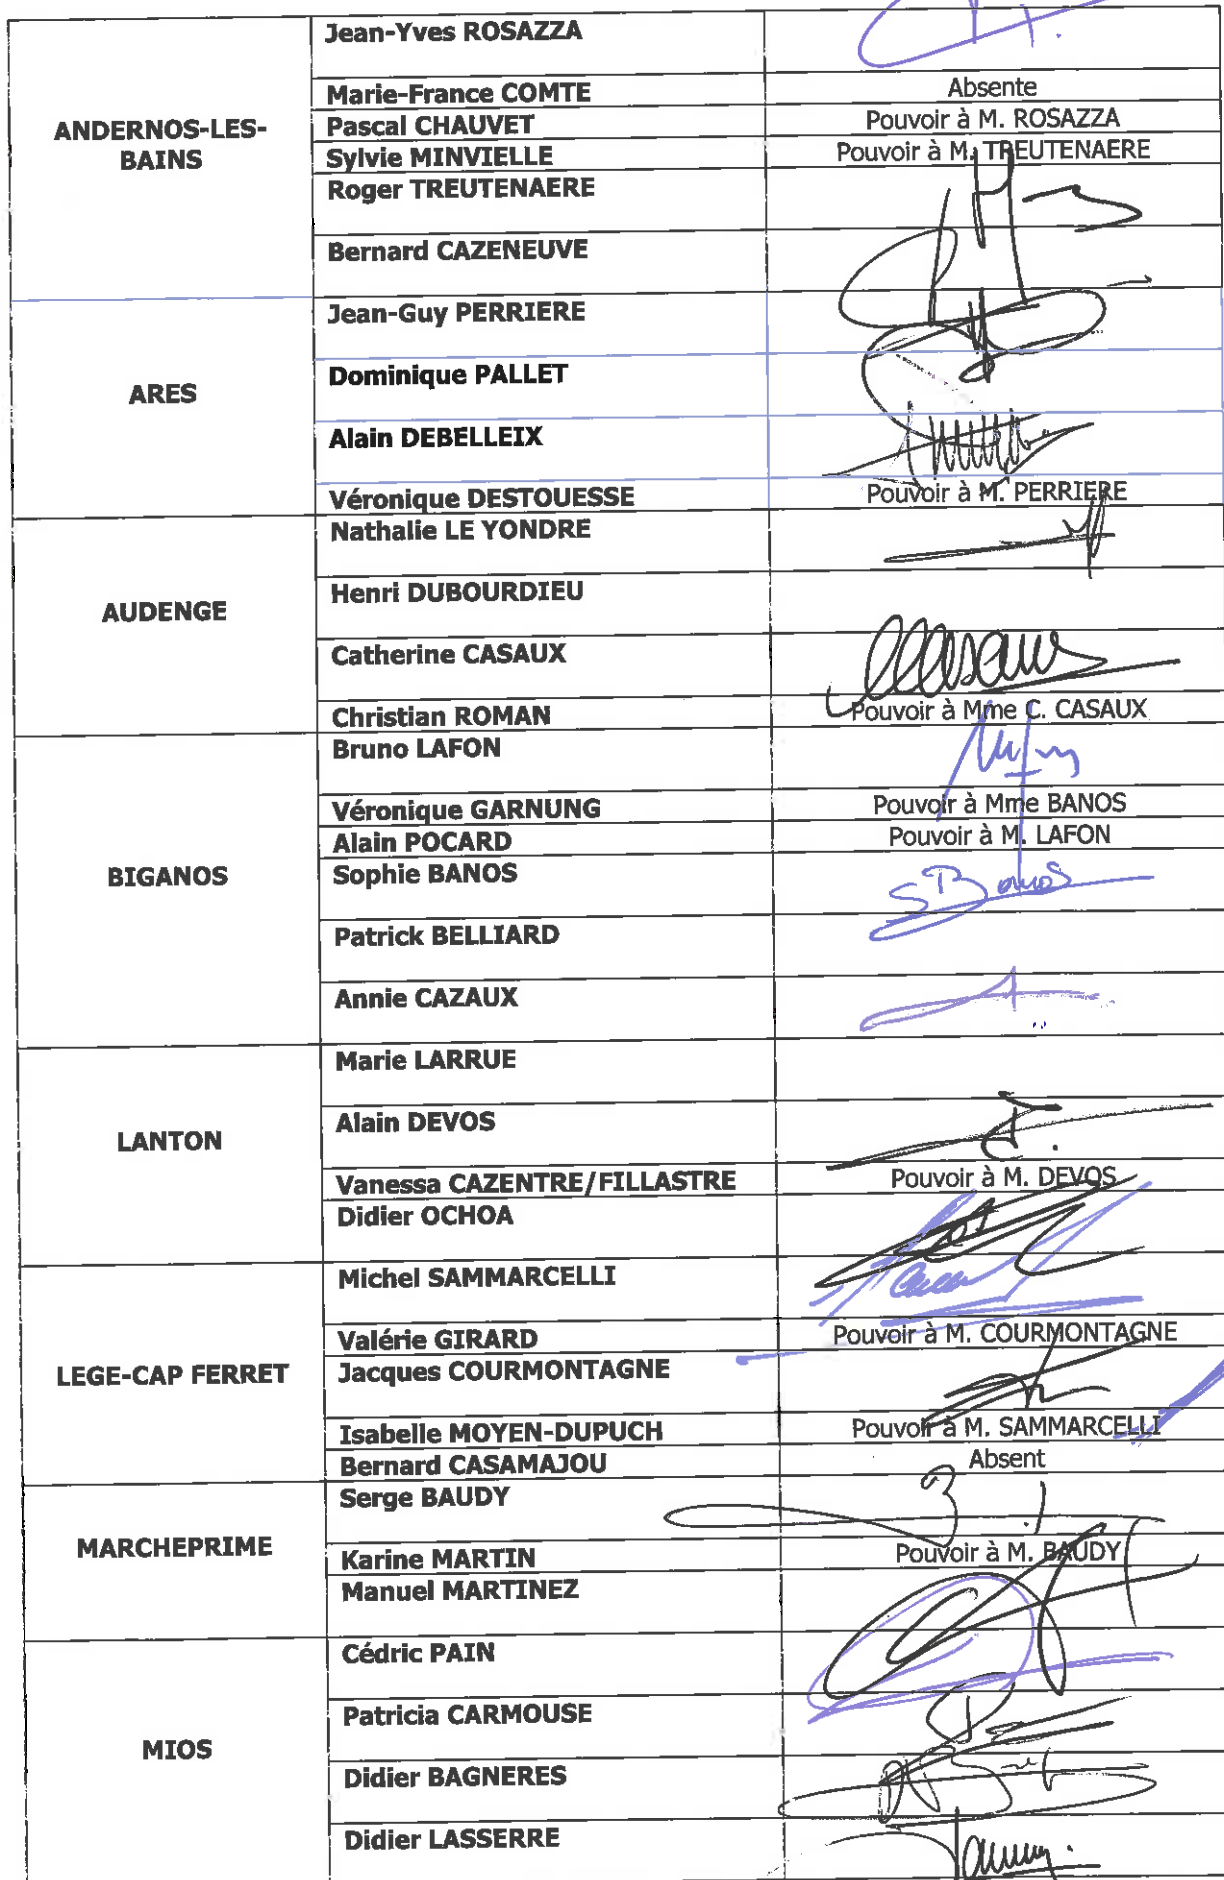 ANDERNOS-LES-
BAINS
Jean-Yves ROSAZZA
Marie-France COMTE Absente
Pascal CHAUVET Pouvoir à M. ROSAZZA
Sylvie MINVIELLE Pouvoir à M. TREUTENAERE
Roger TREUTENAERE
Bernard CAZENEUVE
ARES
Jean-Guy PERRIERE
Dominique PALLET
Alain DEBELLEIX
Véronique DESTOUESSE Pouvoir à M. PERRIERE
AUDENGE
Nathalie LE YONDRE
Henri DUBOURDIEU
Catherine CASAUX
Christian ROMAN Pouvoir à Mme C. CASAUX
BIGANOS
Bruno LAFON
Véronique GARNUNG Pouvoir à Mme BANOS
Alain POCARD Pouvoir à M. LAFON
Sophie BANOS S Banos
Patrick BELLIARD
Annie CAZAUX
LANTON
Marie LARRUE
Alain DEVOS
Vanessa CAZENTRE/FILLASTRE Pouvoir à M. DEVOS
Didier OCHOA
LEGE-CAP FERRET
Michel SAMMARCELLI
Valérie GIRARD Pouvoir à M. COURMONTAGNE
Jacques COURMONTAGNE
Isabelle MOYEN-DUPUCH Pouvoir à M. SAMMARCELLI
Bernard CASAMAJOU Absent
MARCHEPRIME
Serge BAUDY
Karine MARTIN Pouvoir à M. BAUDY
Manuel MARTINEZ
MIOS
Cédric PAIN
Patricia CARMOUSE
Didier BAGNERES
Didier LASSERRE